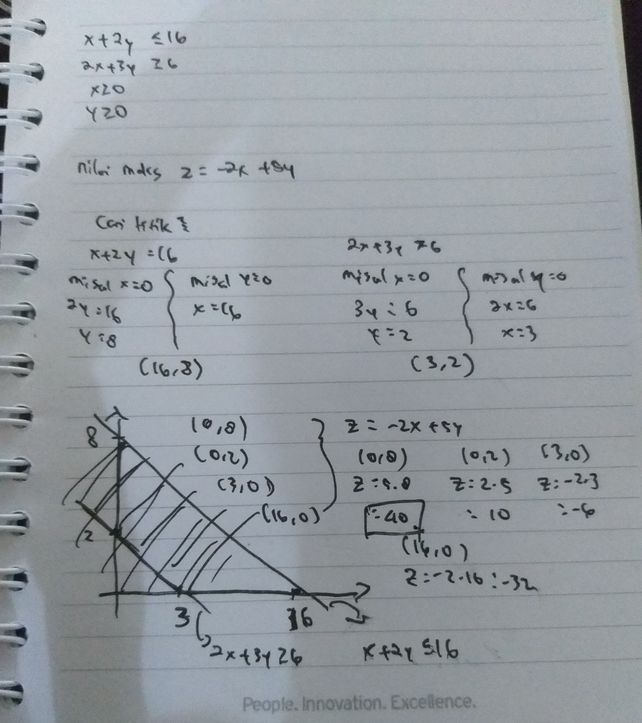 x+2y ≤16
2x+3y ≥6
x≥0
y≥0
nilai maks z = -2x +5y
Cari titik²
x+2y =16
misal x=0
2y=16
y=8
misal y=0
x=16
(16,8)
2x+3y ≥6
misal x=0
3y=6
y=2
misal y=0
2x=6
x=3
(3,2)
8
2
3
16
2x+3y≥6
x+2y ≤16
(0,8)
(0,2)
(3,0)
(16,0)
z = -2x +5y
(0,8) (0,2) (3,0)
z=5.8 z=2.5 z=-2.3
=40 =10 =-6
(16,0)
z=-2.16=-32
People. Innovation. Excellence.